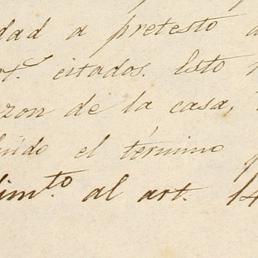 dad a pretesto
citados. Esto
zon de la casa,
el término
al art. 14